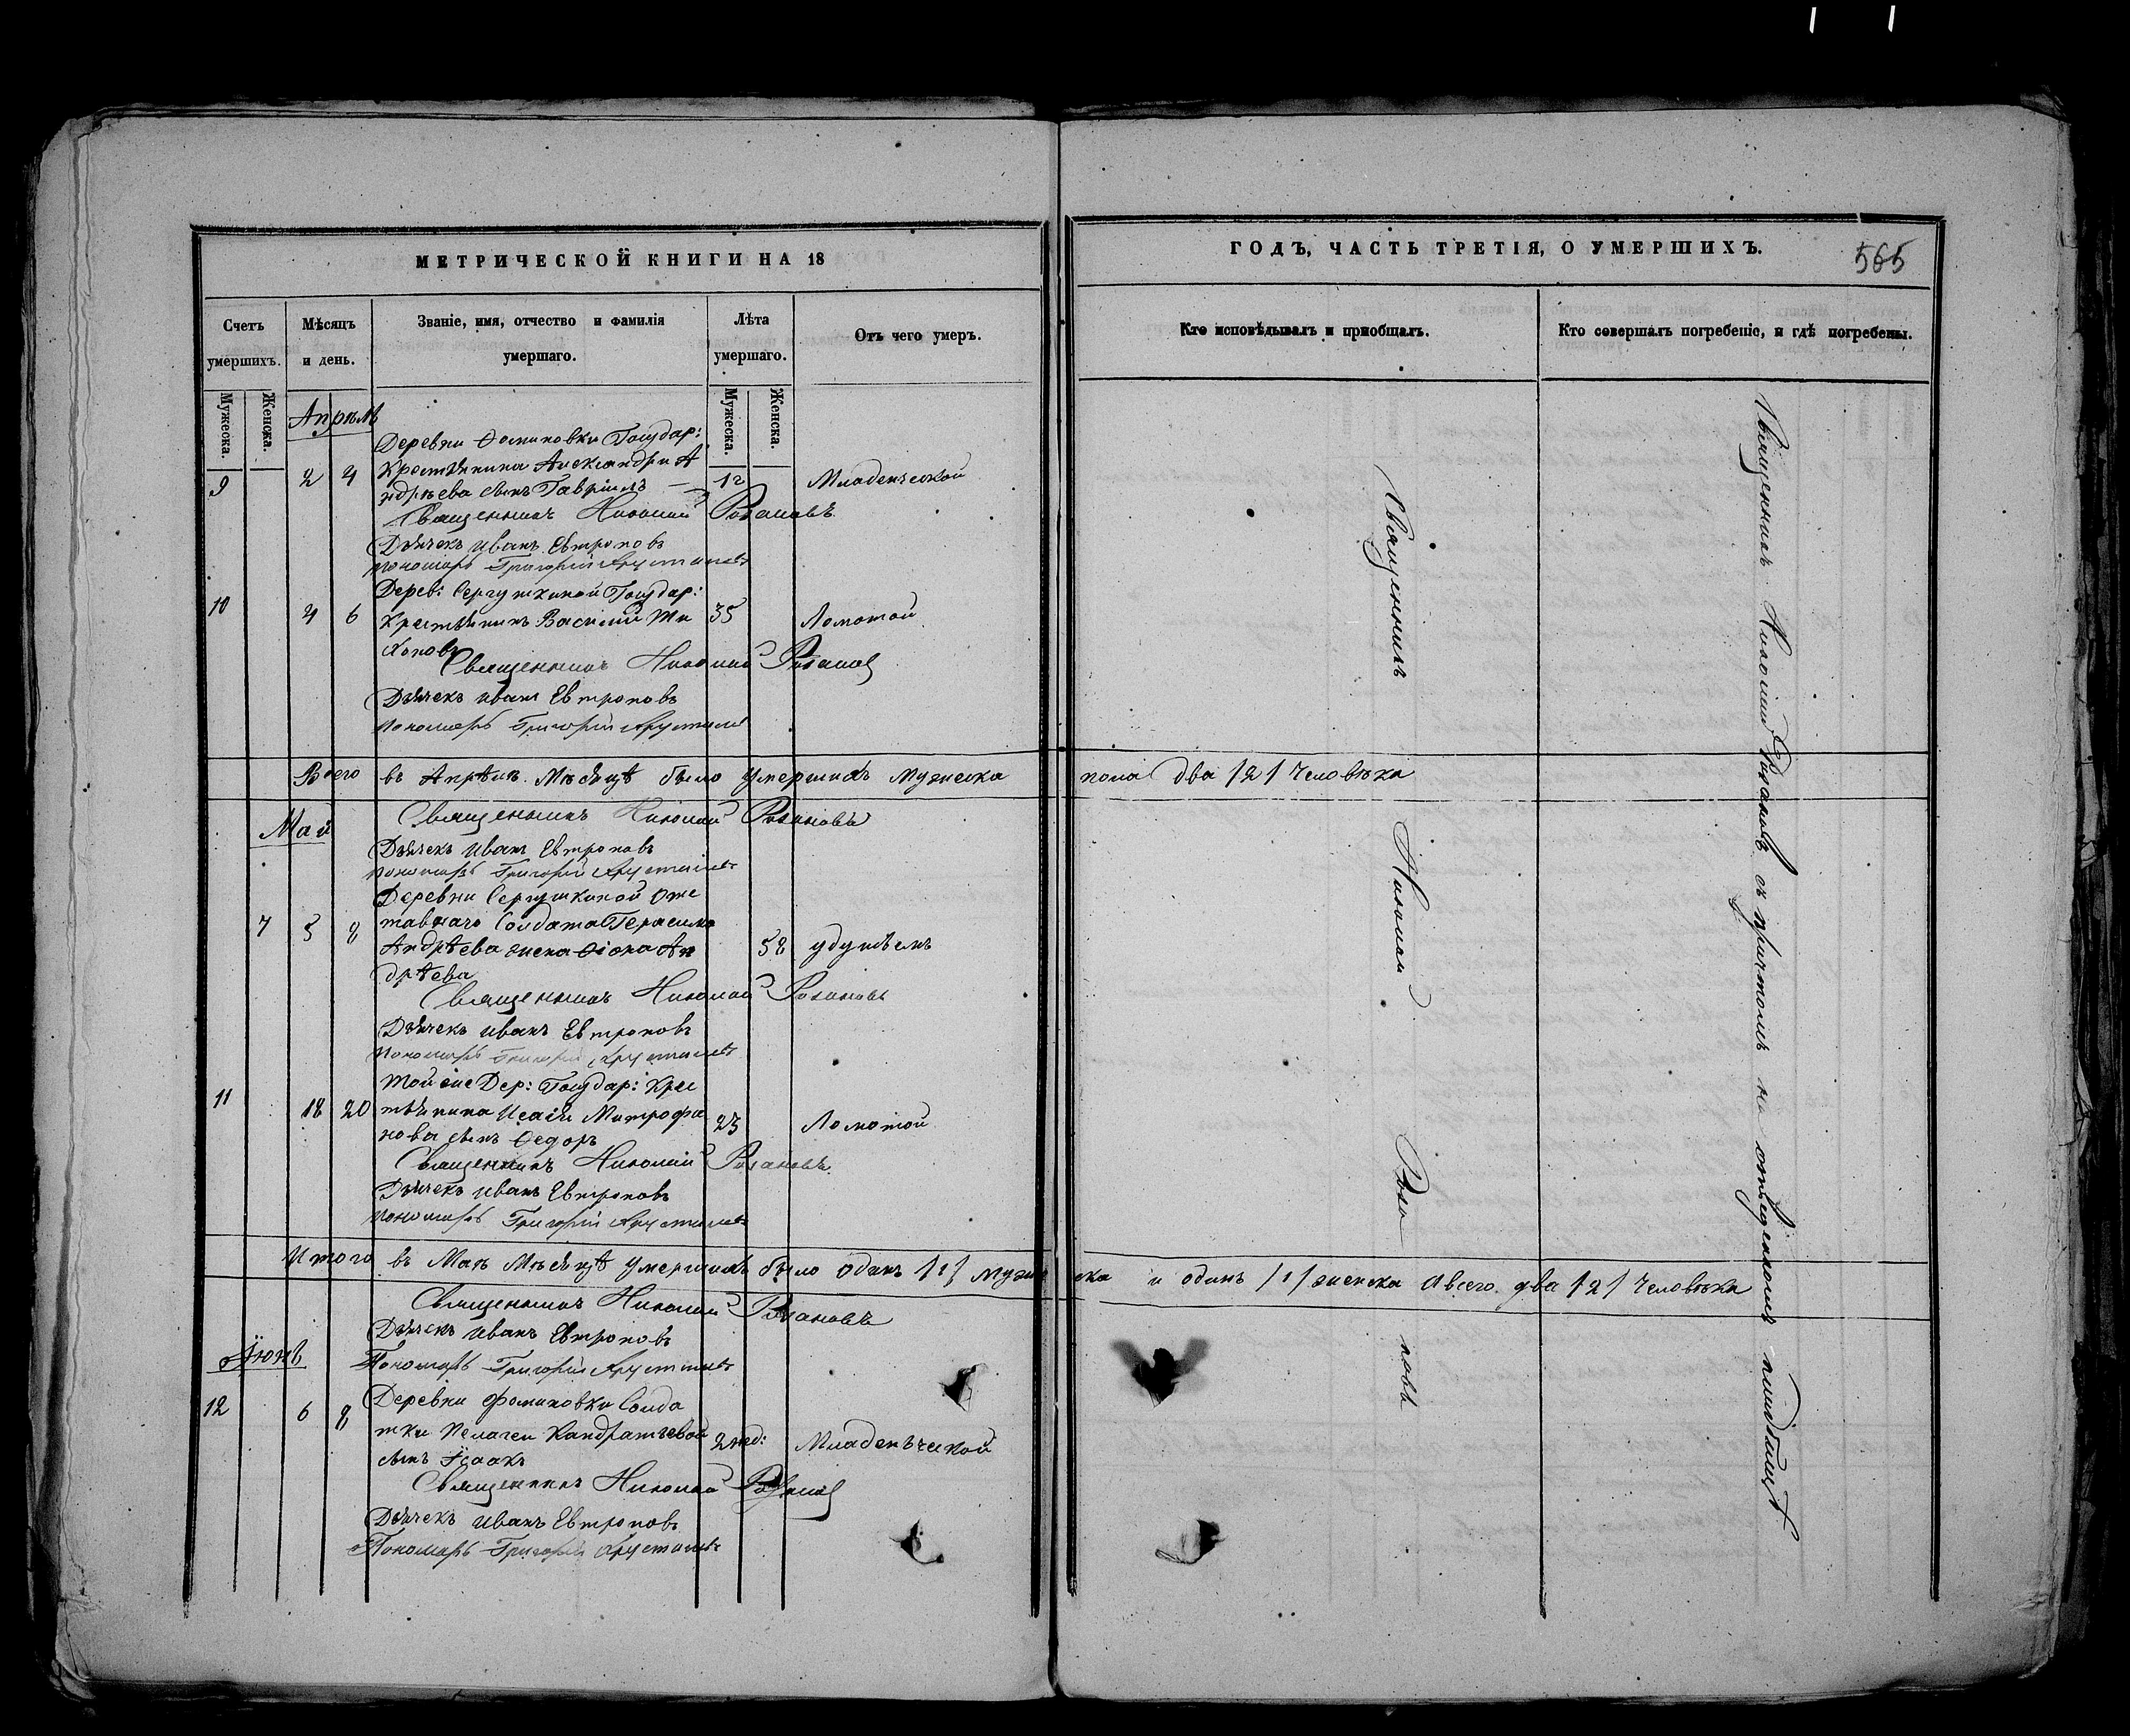 МЕТРИЧЕСКОЙ КНИГИ НА 18
ГОДЪ, ЧАСТЬ ТРЕТІЯ, О УМЕРШИХЪ.
565
Счетъ умершихъ.
Мѣсяцъ и день.
Званіе, имя, отчество и фамилія умершаго.
Лѣта умершаго.
Отъ чего умеръ.
Кто исповѣдывалъ и пріобщалъ.
Кто совершалъ погребеніе, и гдѣ погребены.
Мужеска.
Женска.
Мужеска.
Женска.
Апрѣль
Деревни Ѳоминовки Государ:
9 2 4 Крестьянина Александра А
ндрѣева сынъ Гавріилъ — 1 г Младенческой
Священникъ Николай Розановъ
Дьячекъ Иванъ Евтроповъ
Пономарь Григорій Хрусталевъ
Дерев: Сергушкиной Государ:
10 4 6 Крестьянинъ Василий Ти 35 Ломотой
хоновъ
Священникъ Николай Розановъ
Дьячекъ Иванъ Евтроповъ
Пономарь Григорій Хрусталевъ
Всего въ Апрѣлѣ Мѣсяцѣ было умершихъ мужеска пола два /2/ человѣка
Священникъ Николай Розановъ
Май
Дьячекъ Иванъ Евтроповъ
Пономарь Григорій Хрусталевъ
Деревни Сергушкиной Отс
7 5 8 тавнаго Солдата Герасима
Андрѣева жена Ѳіона Ан 58 удушьемъ
дрѣева
Священникъ Николай Розановъ
Дьячекъ Иванъ Евтроповъ
Пономарь Григорій Хрусталевъ
Той же Дер: Государ: Крес
11 18 20 тьянина Исаіи Митрофа 23 Ломотой
нова сынъ Ѳедоръ
Священникъ Николай Розановъ
Дьячекъ Иванъ Евтроповъ
Пономарь Григорій Хрусталевъ
Итого въ Маѣ Мѣсяцѣ умершихъ было одинъ /1/ мужеска и одинъ /1/ женска а всего два /2/ человѣка
Священникъ Николай Розановъ
Дьячекъ Иванъ Евтроповъ
Іюнь
Пономарь Григорій Хрусталевъ
12 6 8 Деревни Фоминовки Солда
тки Пелагеи Кандратьевой 2 нед: Младенческой
сынъ Ісаакъ
Священникъ Николай Розановъ
Дьячекъ Иванъ Евтроповъ
Пономарь Григорій Хрусталевъ
Священникъ Николай Розановъ
Священникъ Николай Розановъ съ причтомъ на отведенномъ кладбищѣ